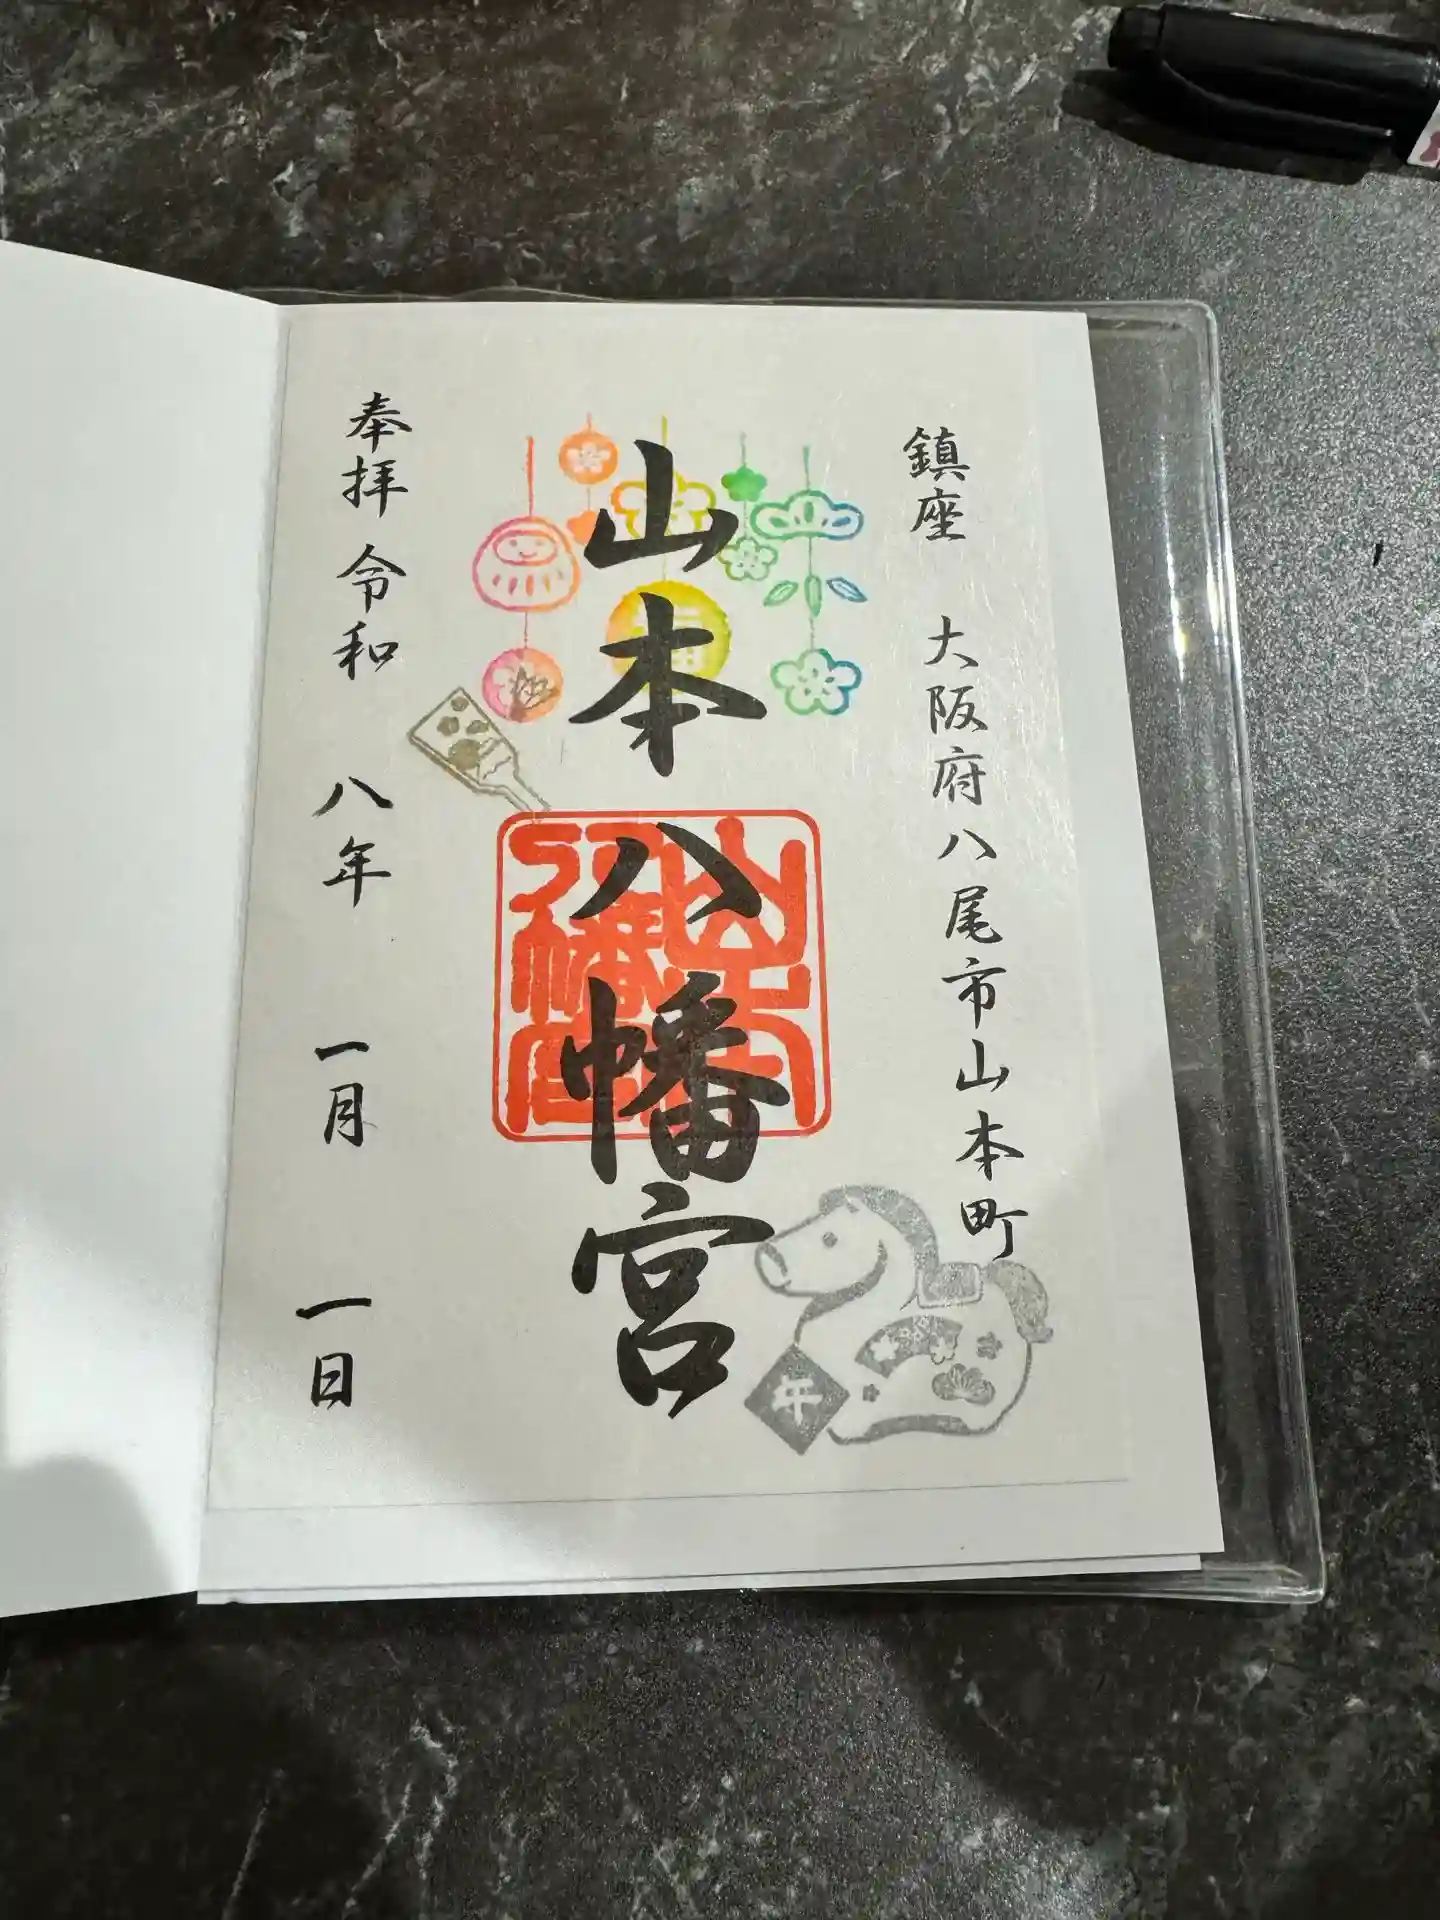 鎮座 大阪府八尾市山本町
山本八幡宮
奉拝 令和 八年 一月 一日
山本
八幡宮
午